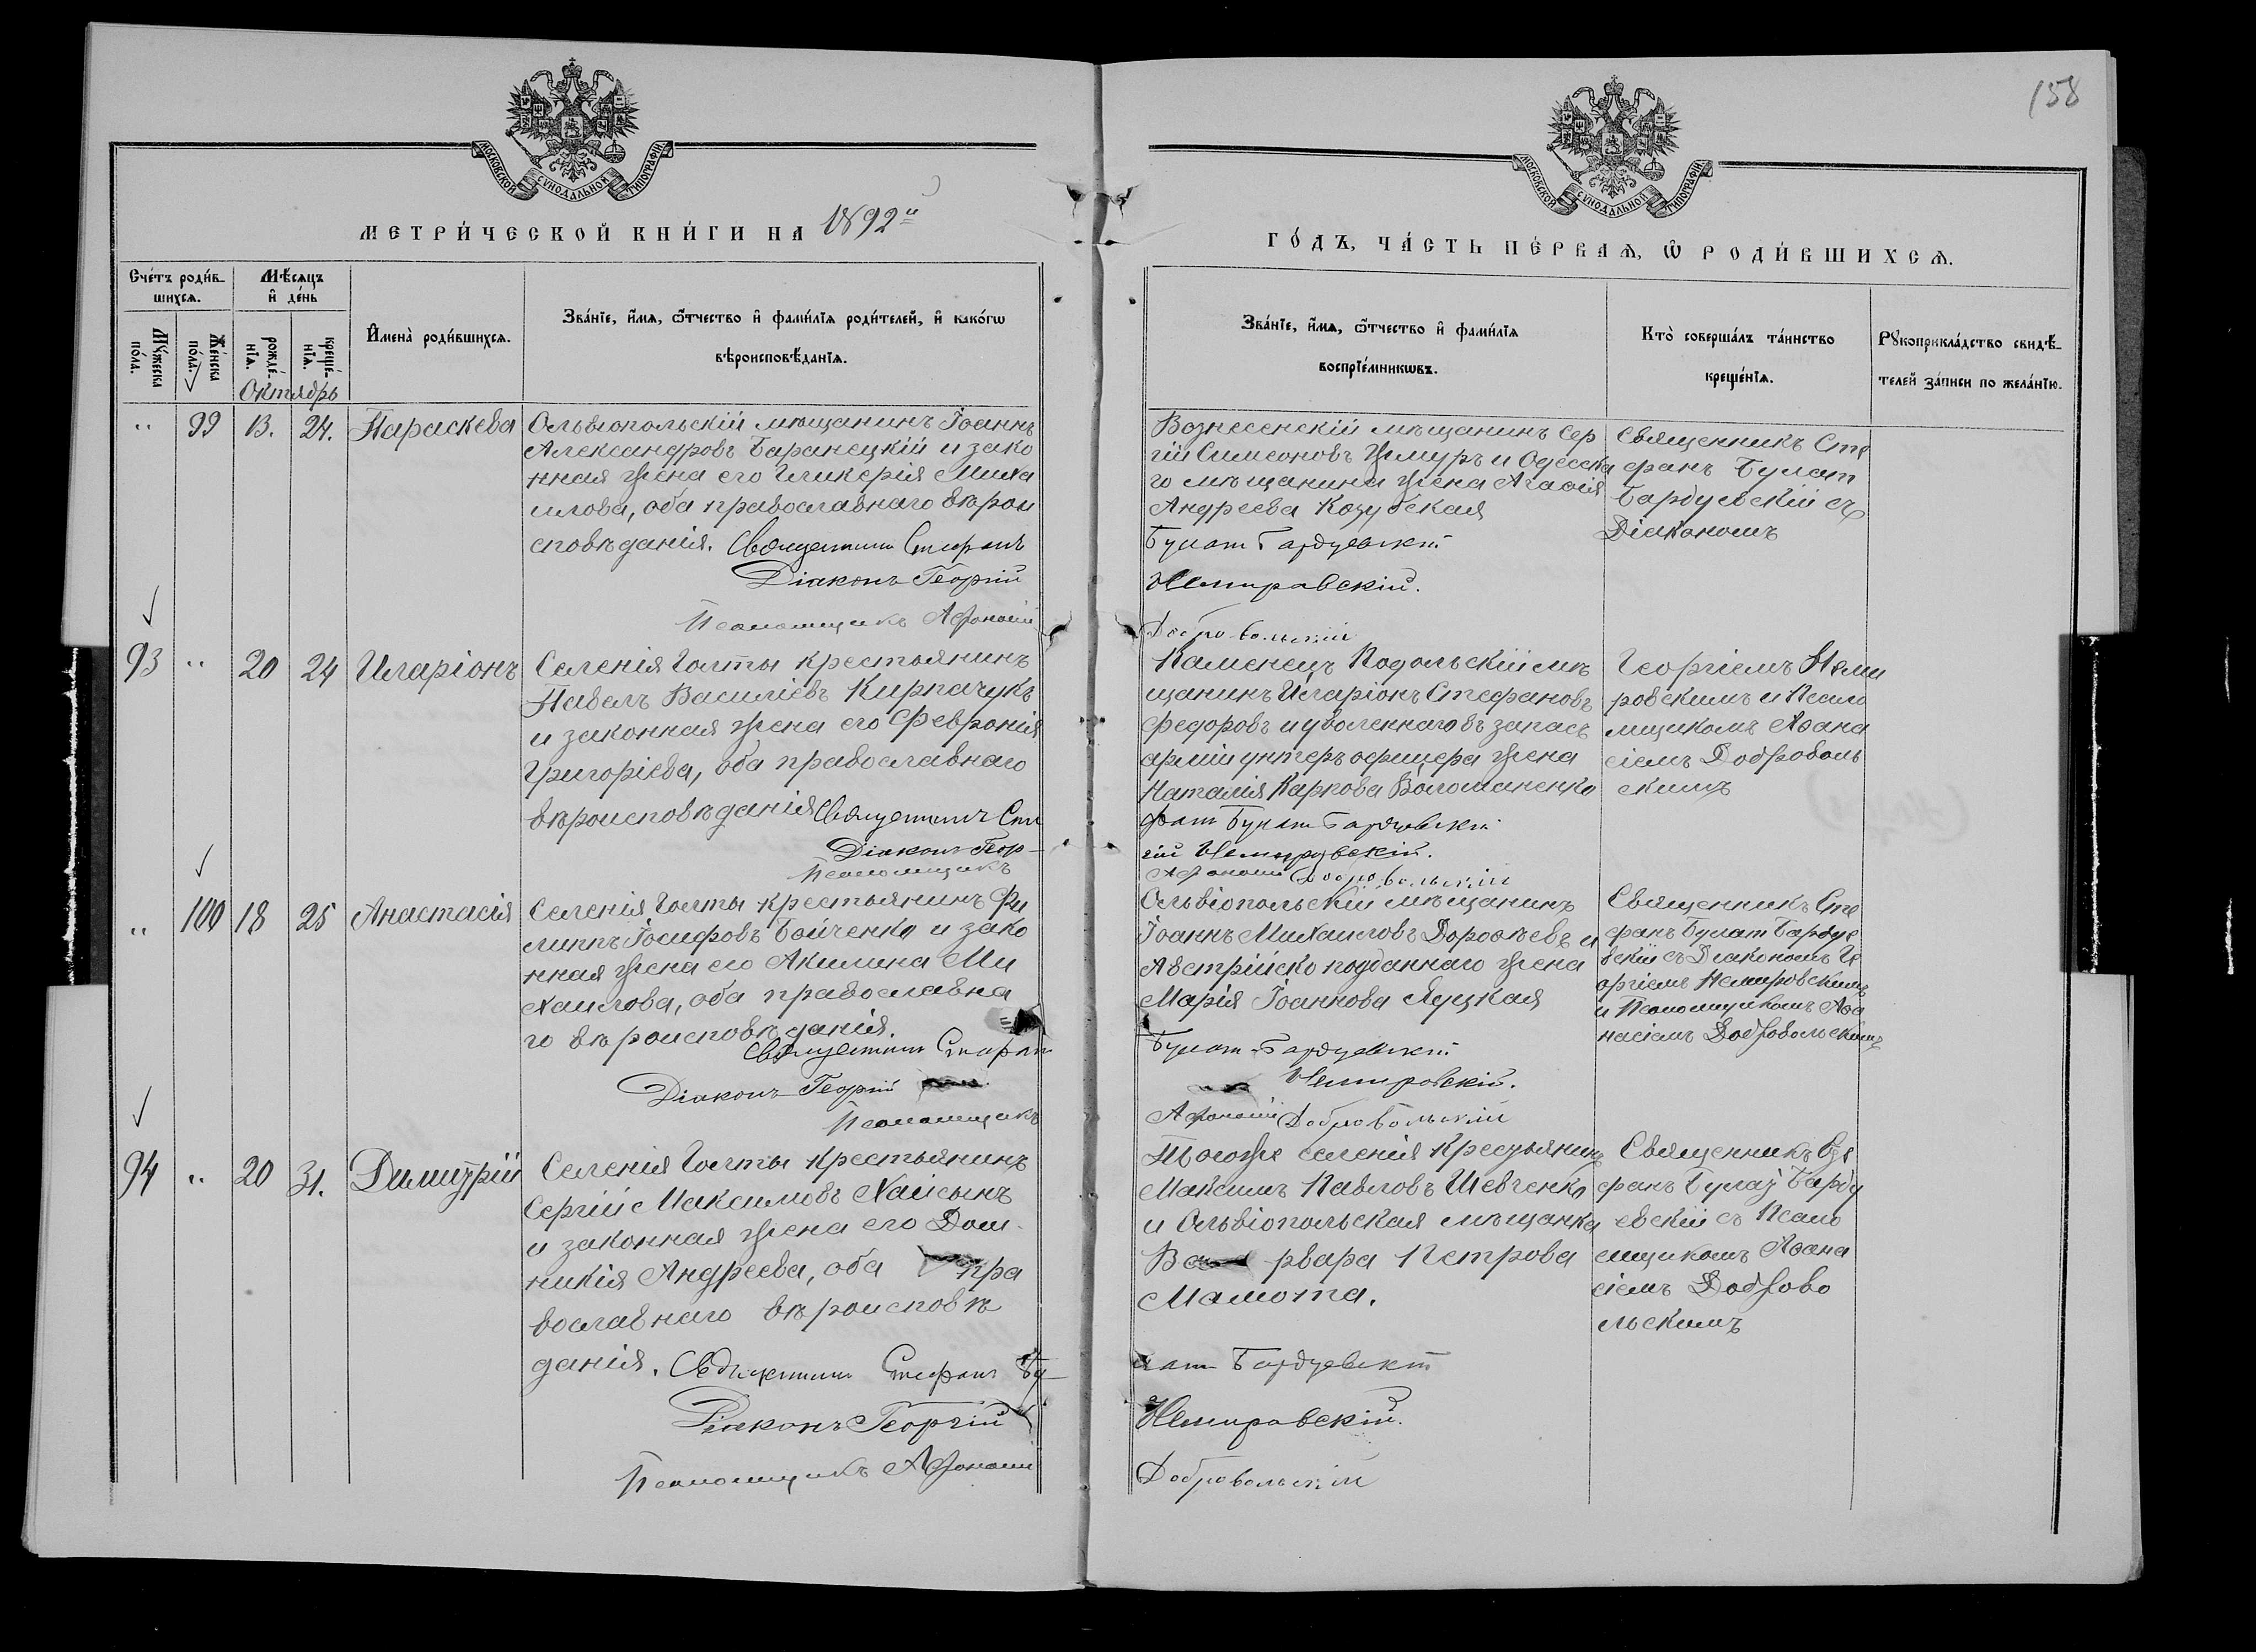 158
МОСКОВСКОЙ СУНОДАЛЬНОЙ ТИПОГРАФІИ
МОСКОВСКОЙ СУНОДАЛЬНОЙ ТИПОГРАФІИ
МЕТРИ́ЧЕСКОЙ КНИ́ГИ НА 1892й
ГО́ДЪ, ЧА́СТЬ ПЕ́РВАѦ, Ѡ҆ РОДИ́ВШИХСѦ.
Сче́тъ роди́в-
шихсѧ.
Мѣ́сѧцъ
и҆ де́нь
Мꙋ́жеска
по́ла.
Же́нска
по́ла.
рожде́-
нїѧ.
креще́-
нїѧ.
Октябрь
И҆мена̀ роди́вшихсѧ.
Зва́нїе, и҆́мѧ, ѻ҆́тчество и҆ фами́лїѧ роди́телей, и҆ како́гѡ
вѣроисповѣ́данїѧ.
Зва́нїе, и҆́мѧ, ѻ҆́тчество и҆ фами́лїѧ
воспрїе́мникѡвъ.
Кто̀ соверша́лъ та́инство
креще́нїѧ.
Рꙋкоприкла́дство свидѣ́-
телей за́писи по жела́нїю.
" 99 13. 24. Параскева
Ольвіопольскій мѣщанинъ Іоаннъ
Александровъ Баранецкій и зако
нная жена его Гликерія Миха
илова, оба православнаго вѣрои
сповѣданія. Священникъ Стефанъ
Діаконъ Георгій
Псаломщикъ Афанасій
Вознесенскій мѣщанинъ Сер
гій Симеоновъ Жмуръ и Одесска
го мѣщанина жена Агаѳія
Андреева Козубская
Булат Бардуевскій
Немировскій.
Добровольскій
Священникъ Сте
фанъ Булат
Бардуевскій съ
Діакономъ
93 " 20 24 Иларіонъ
Селенія Голты крестьянинъ
Павелъ Василіевъ Кирпачукъ
и законная жена его Февронія
Григоріева, оба православнаго
вѣроисповѣданія Священникъ Сте
Діаконъ Геор-
Псаломщикъ
Каменецъ Подольскій мѣ
щанинъ Иларіонъ Стефановъ
Федоровъ и уволеннаго въ запасъ
арміи унтеръ офицера жена
Наталія Карпова Воломаненко
фанъ Булат Бардуевскій
гій Немировскій.
Афанасій Добровольскій
Георгіемъ Неми
ровскимъ и Псало
мщикомъ Аѳана
сіемъ Доброволь
скимъ
" 100 18 25 Анастасія
Селенія Голты крестьянинъ Фи
липпъ Іосифовъ Бойченко и зако
нная жена его Акилина Ми
хаилова, оба православна
го вѣроисповѣданія.
Священникъ Стефанъ
Діаконъ Георгій
Псаломщикъ
Ольвіопольскій мѣщанинъ
Іоаннъ Михаиловъ Дороѳѣевъ и
Австрійско подданнаго жена
Марія Іоаннова Яуцкая
Булат-Бардуевскій
Немировскій.
Афанасій Добровольскій
Священникъ Сте
фанъ Булат Бардуе
вскій съ Діакономъ Ге
оргіемъ Немировскимъ
и Псаломщикомъ Аѳа
насіемъ Добровольскимъ
94 " 20 31. Димитрій
Селенія Голты крестьянинъ
Сергій Максимовъ Хайсынъ
и законная жена его Дом-
никія Андреева, оба пра
вославнаго вѣроисповѣ
данія. Священникъ Стефанъ Бу-
Діаконъ Георгій
Псаломщикъ Афанасій
Тогоже селенія крестьянинъ
Максимъ Павловъ Шевченко
и Ольвіопольская мѣщанка
Ва рвара Петрова
Мамота.
лат Бардуевскій
Немировскій.
Добровольскій
Священникъ Сте
фанъ Булат Барду
евскій съ Псало
мщикомъ Аѳана
сіемъ Доброво
льскимъ